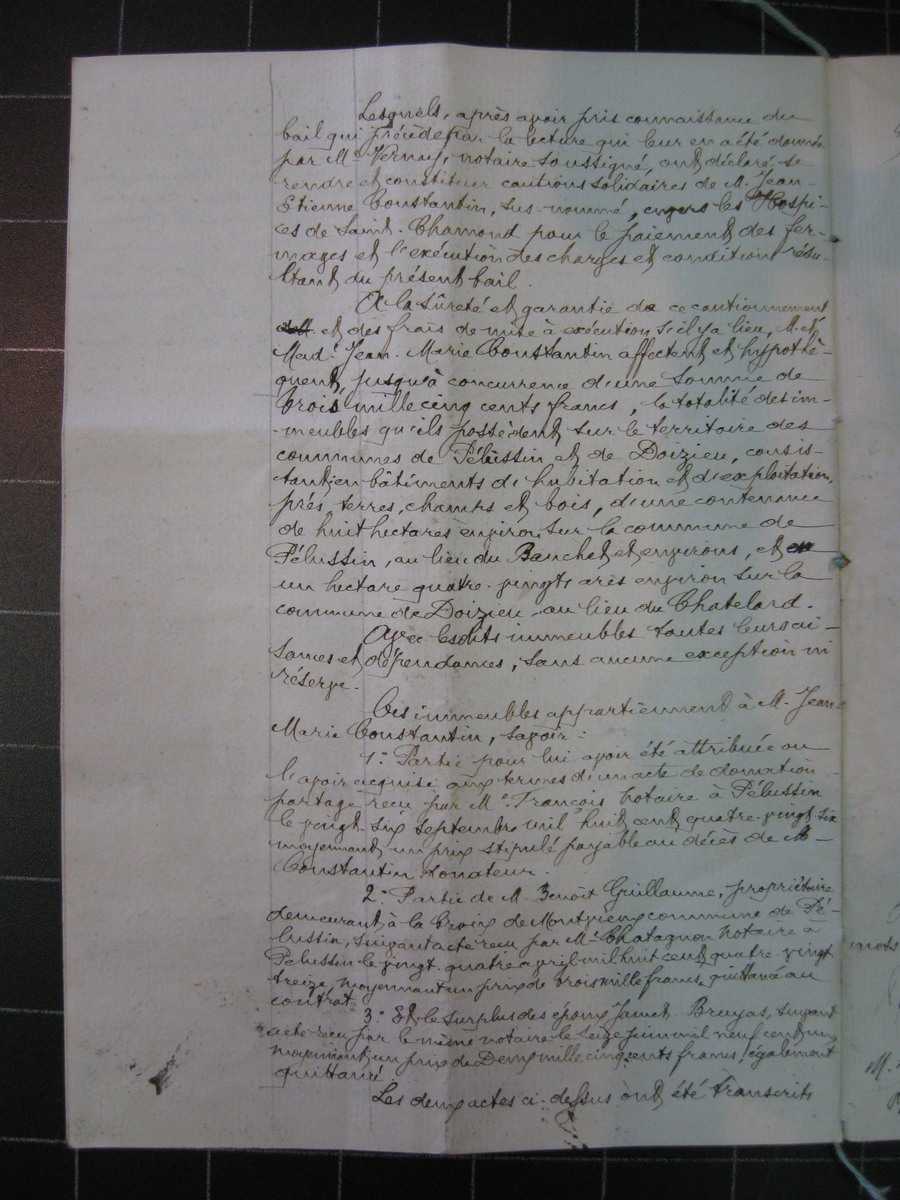 Lesquels, après avoir pris connaissance du
bail qui précède par la lecture qui leur en a été donnée
par Me Vernay, notaire soussigné, ont déclaré se
rendre et constituer cautions solidaires de M. Jean-
Etienne Constantin, sus-nommé, envers les Hospi-
ces de Saint-Chamond pour le paiement des fer-
mages et l'exécution des charges et conditions résu-
ltant du présent bail.
A la sûreté et garantie de ce cautionnement
et des frais de mise à exécution s'il y a lieu, M. et
Made Jean-Marie Constantin affectent et hypothè-
quent, jusqu'à concurrence d'une somme de
trois mille cinq cents francs, la totalité des im-
meubles qu'ils possèdent sur le territoire des
communes de Pélussin et de Doizieu, consis-
tant en bâtiments d'habitation et d'exploitation,
prés, terres, champs et bois, d'une contenance
de huit hectares environ sur la commune de
Pélussin, au lieu du Banchet et environs, et
un hectare quatre-vingts ares environ sur la
commune de Doizieu au lieu du Chatelard.
Avec lesdits immeubles toutes leurs ai-
sances et dépendances, sans aucune exception ni
réserve.
Ces immeubles appartiennent à M. Jean-
Marie Constantin, savoir:
1º Partie pour lui avoir été attribuée ou
l'avoir acquise aux termes d'un acte de donation-
partage reçu par Me François notaire à Pélussin
le vingt-six septembre mil huit cent quatre-vingt-six
moyennant un prix stipulé payable au décès de M
Constantin donateur.
2º Partie de M. Benoît Guillaume, propriétaire
demeurant à la Croix de Montvieux commune de Pé-
lussin, suivant acte reçu par Me Chatagnon notaire à
Pélussin le vingt-quatre avril mil huit cent quatre-vingt
treize, moyennant un prix de trois mille francs, quittancé au
contrat
3º Et le surplus des époux Jamet-Bruyas, suivant
acte reçu par le même notaire le seize juin mil neuf cent un
moyennant un prix de Deux mille cinq cents francs, également
quittancé
Les deux actes ci-dessus ont été transcrits
mots
M.